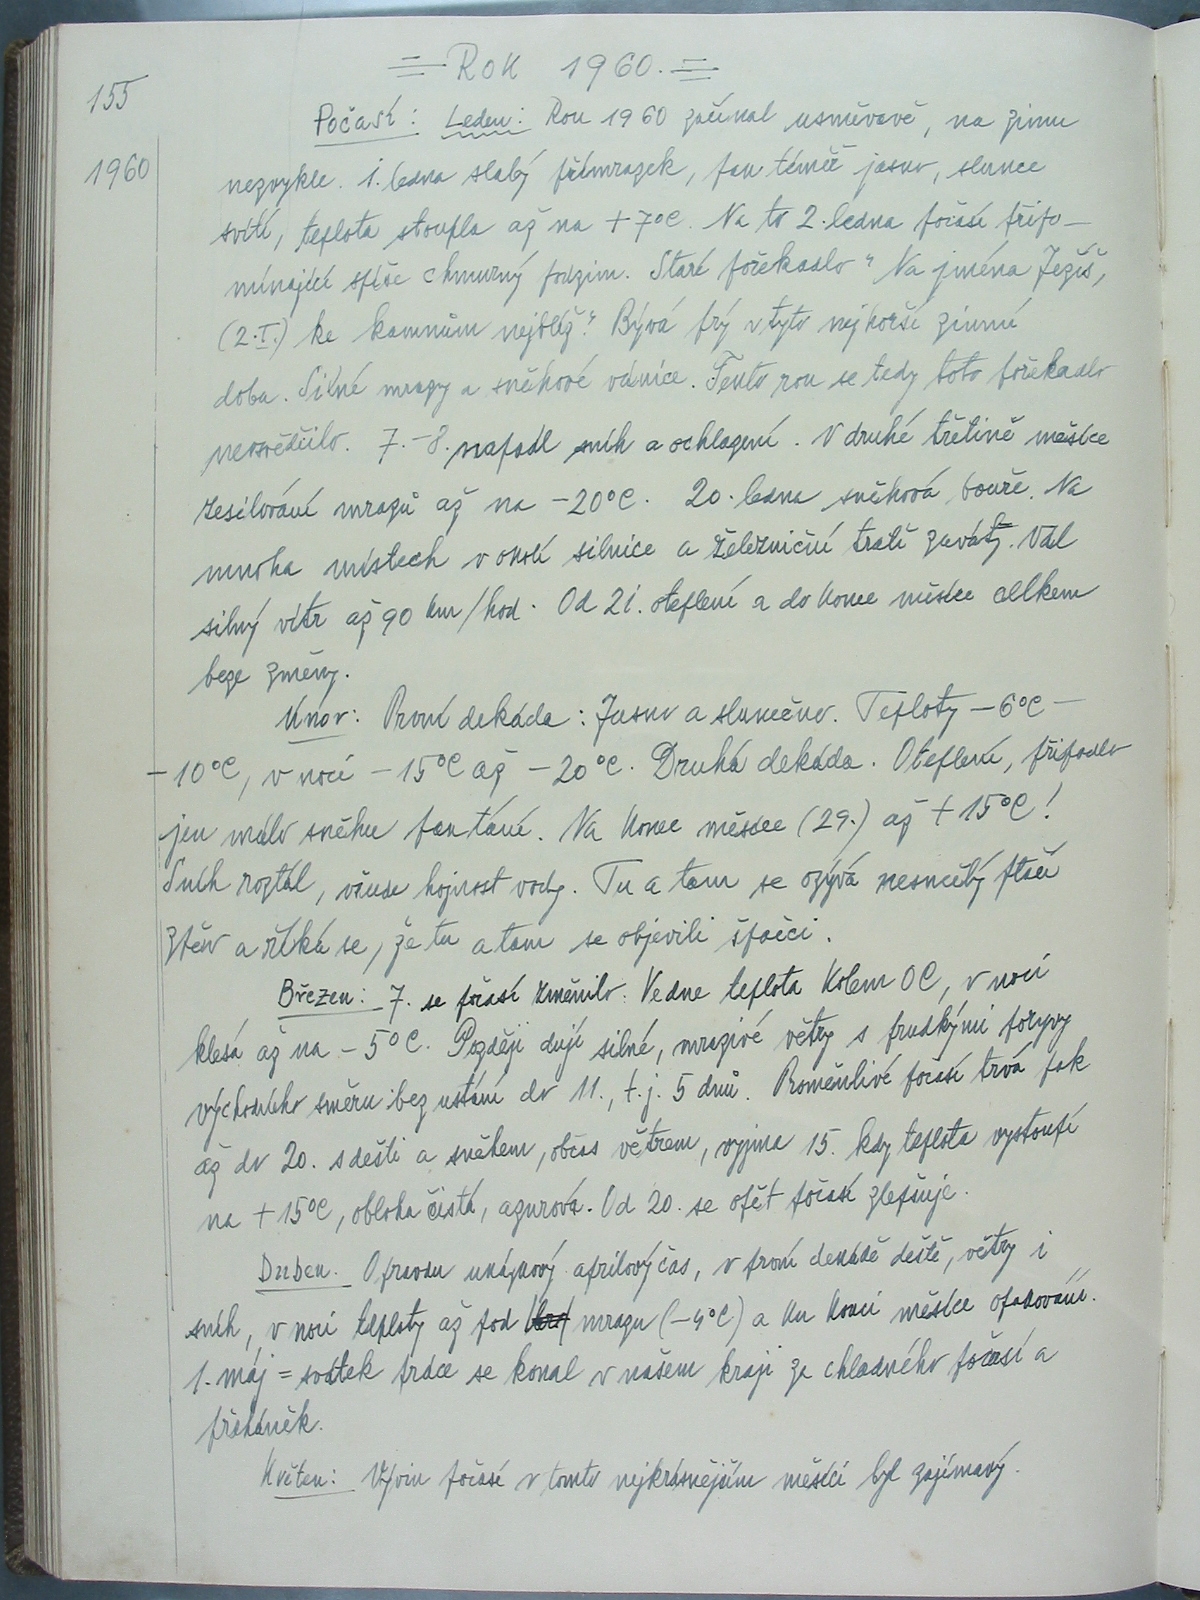 = Rok 1960. =
155
Počasí: Leden: Rok 1960 začínal usměvavě, na zimu
1960
nezvykle. 1. ledna slabý přímrazek, pak téměř jasno, slunce
svítí, teplota stoupla až na +7°C. Na to 2. ledna počasí připo-
mínající spíše chmurný podzim. Staré pořekadlo "Na jména Ježíš,
(2.I.) ke kamnům nejblíž". Bývá prý v tyto nejhorší zimní
doba. Silné mrazy a sněhové vánice. Tento rok se tedy toto pořekadlo
neosvědčilo. 7.-8. napadl sníh a ochlazení. V druhé třetině měsíce
zesilování mrazů až na -20°C. 20. ledna sněhová bouře. Na
mnoha místech v okolí silnice a železniční tratě zaváty. Vál
silný vítr až 90 km/hod. Od 21. oteplení a do konce měsíce cellkem
beze změny.
Únor: První dekáda: Jasno a slunečno. Teploty -6°C -
-10°C, v noci -15°C až -20°C. Druhá dekáda. Oteplení, připadlo
jen málo sněhu pak tání. Na konec měsíce (29.) až +15°C!
Sníh roztál, všude hojnost vody. Tu a tam se ozývá nesmělý ptačí
zpěv a říká se, že tu a tam se objevili špačci.
Březen: 7. se počasí změnilo. Ve dne teplota kolem 0C, v noci
klesá až na -5°C. Později dují silné, mrazivé větry s prudkými poryvy
východního směru bez ustání do 11., t.j. 5 dnů. Proměnlivé počasí trvá pak
až do 20. s dešti a sněhem, občas větrem, vyjma 15. kdy teplota vystoupí
na +15°C, obloha čistá, azurová. Od 20. se opět počasí zlepšuje.
Duben. Opravdu ukázkový aprílový čas, v první dekádě deště, větry i
sníh, v noci teploty až pod mrazu (-4°C) a ku konci měsíce opakování.
1. máj = svátek práce se konal v našem kraji ze chladného počasí a
přeháněk.
Květen: Vývin počasí v tomto nejkrásnějším měsíci byl zajímavý.